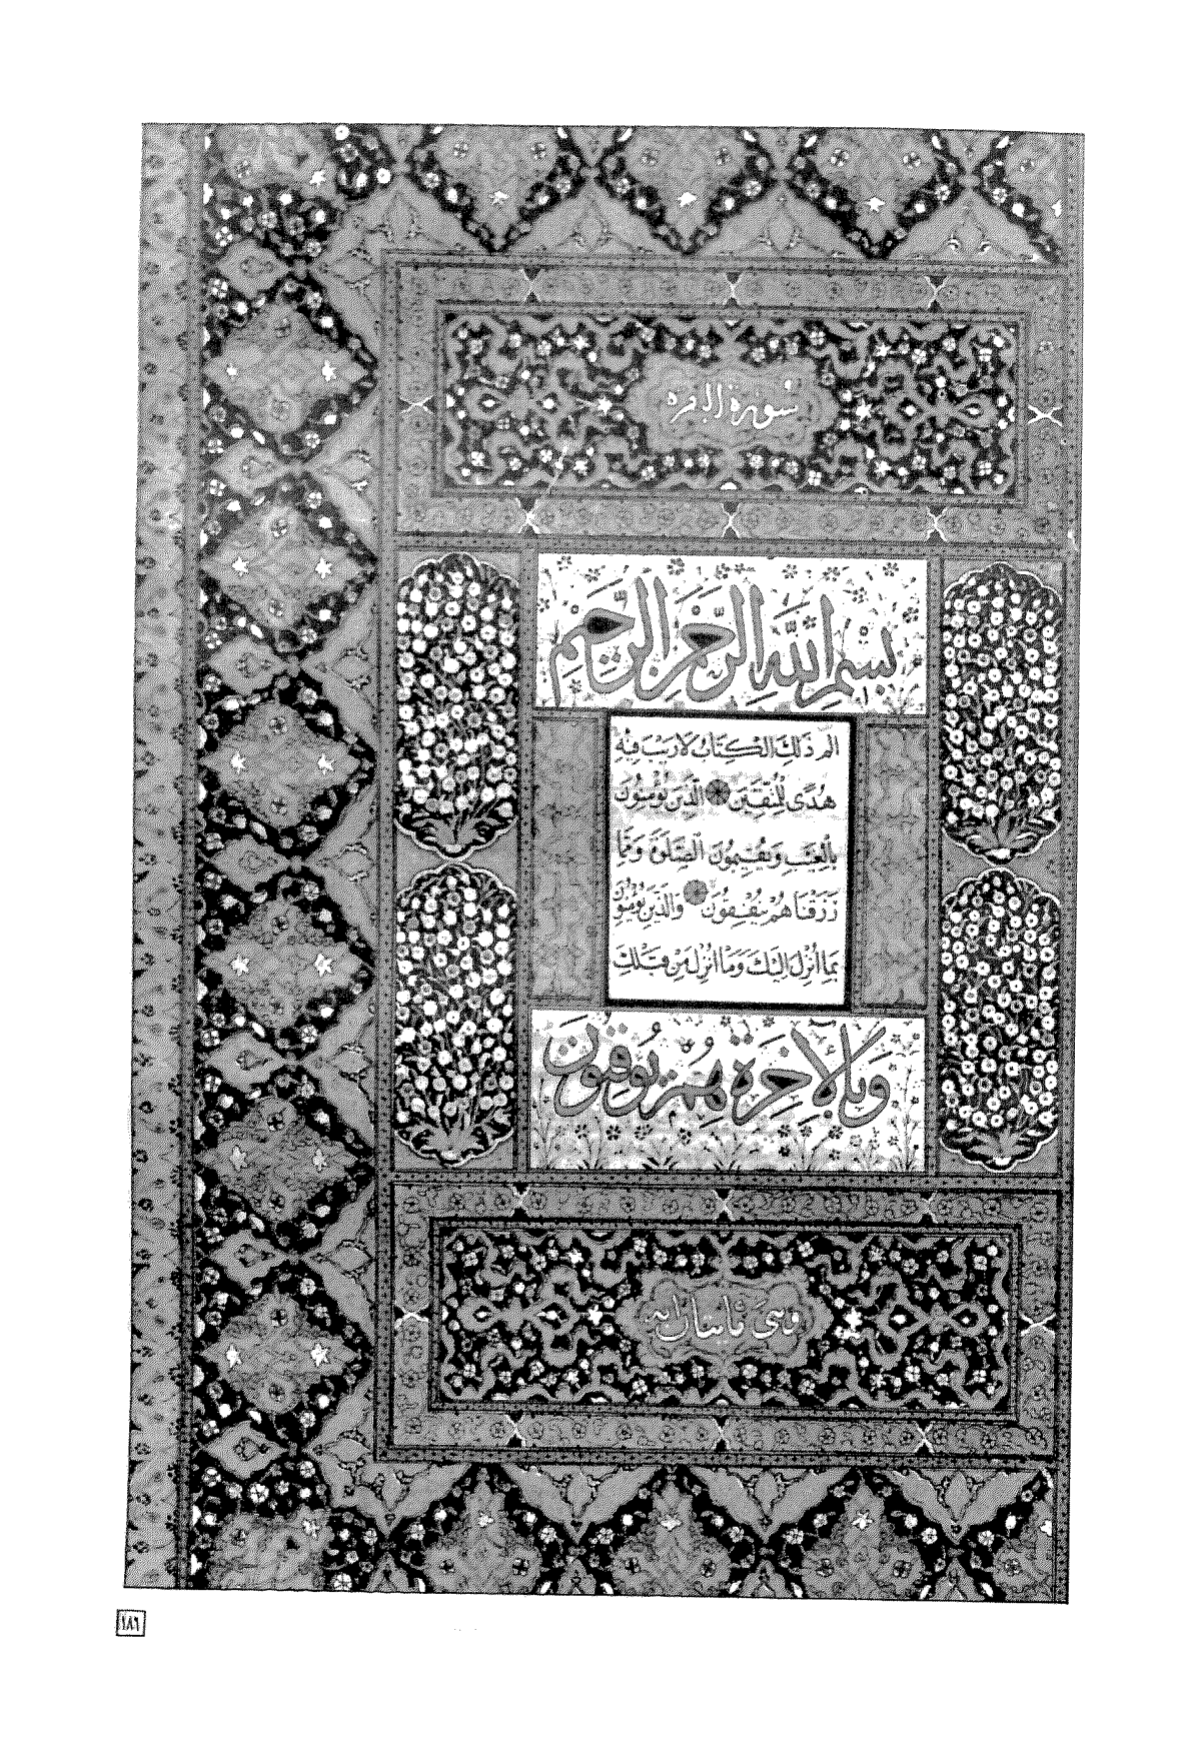 سورة البقره
بسم الله الرحمن الرحيم
الم ذَلِكَ الْكِتَابُ لَا رَيْبَ فِيْهِ
هُدًى لِلْمُتَّقِيْنَ الَّذِيْنَ يُؤْمِنُوْنَ
بِالْغَيْبِ وَيُقِيْمُوْنَ الصَّلٰوةَ وَمِمَّا
رَزَقْنَاهُمْ يُنْفِقُوْنَ وَالَّذِيْنَ يُؤْمِنُوْنَ
بِمَا اُنْزِلَ اِلَيْكَ وَمَا اُنْزِلَ مِنْ قَبْلِكَ
وَبِالْاٰخِرَةِ هُمْ يُوْقِنُوْنَ
وهى مايتان ايه
١٨٦